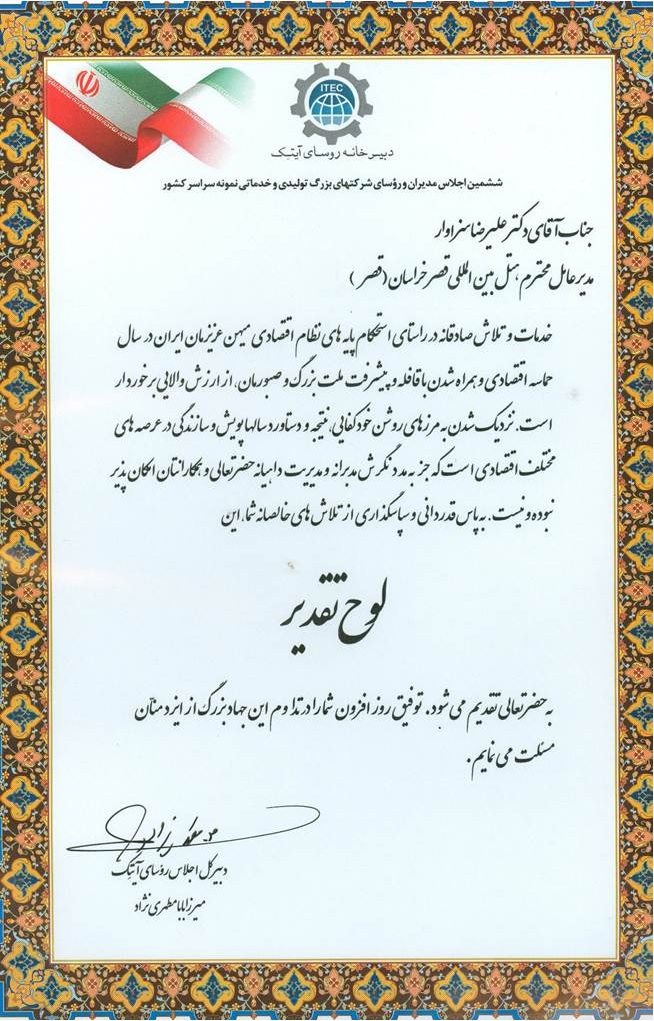 ITEC
دبیرخانه روسای آیتک
ششمین اجلاس مدیران و رؤسای شرکتهای بزرگ تولیدی و خدماتی نمونه سراسر کشور
جناب آقای دکتر علیرضا سزاوار
مدیرعامل محترم هتل بین المللی قصر خراسان (قصر)
خدمات و تلاش صادقانه در راستای استحکام پایه های نظام اقتصادی میهن عزیزمان ایران در سال
حماسه اقتصادی و همراه شدن با قافله و پیشرفت ملت بزرگ و صبورمان، از ارزش والایی برخوردار
است. نزدیک شدن به مرزهای روشن خودکفایی، نتیجه و دستاورد سالها پویش و سازندگی در عرصه های
مختلف اقتصادی است که جز به مدد نگرش مدبرانه و مدیریت داهیانه حضرتعالی و همکارانتان امکان پذیر
نبوده و نیست. به پاس قدردانی و سپاسگذاری از تلاش های خالصانه شما، این
لوح تقدیر
به حضرتعالی تقدیم می شود. توفیق روز افزون شما را در تداوم این جهاد بزرگ از ایزد منّان
مسئلت می نمایم.
دبیر کل اجلاس رؤسای آیتک
میرزابابا مطهری نژاد